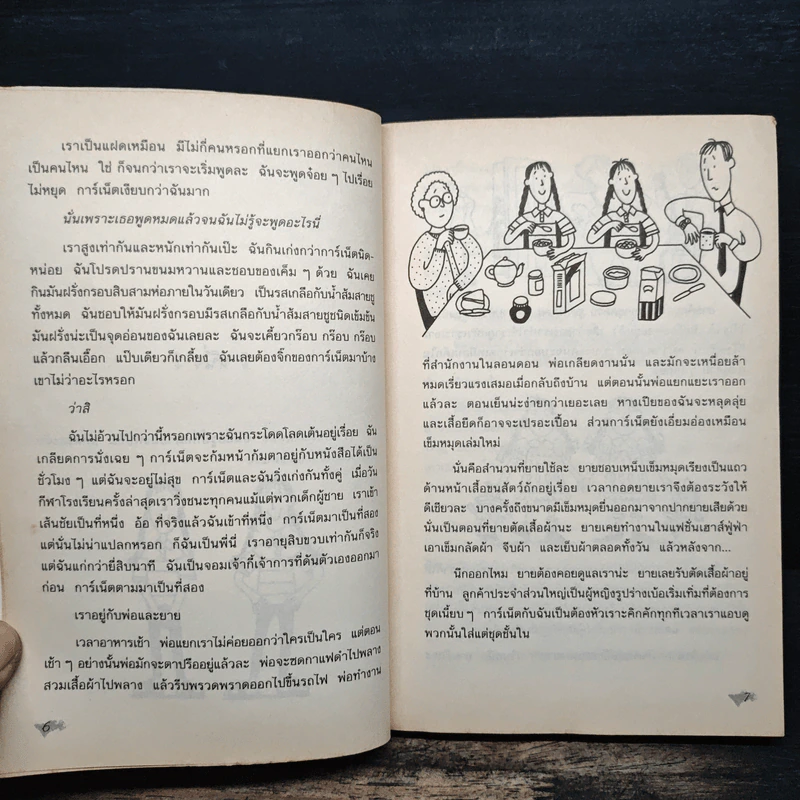 เราเป็นแฝดเหมือน มีไม่กี่คนหรอกที่แยกเราออกว่าคนไหน
เป็นคนไหน ใช่ ก็จนกว่าเราจะเริ่มพูดละ ฉันจะพูดจ้อย ๆ ไปเรื่อย
ไม่หยุด การ์เน็ตเงียบกว่าฉันมาก
นั่นเพราะเธอพูดหมดแล้วจนฉันไม่รู้จะพูดอะไรนี่
เราสูงเท่ากันและหนักเท่ากันเป๊ะ ฉันกินเก่งกว่าการ์เน็ตนิด-
หน่อย ฉันโปรดปรานขนมหวานและชอบของเค็ม ๆ ด้วย ฉันเคย
กินมันฝรั่งกรอบสิบสามห่อภายในวันเดียว เป็นรสเกลือกับน้ำส้มสายชู
ทั้งหมด ฉันชอบให้มันฝรั่งกรอบมีรสเกลือกับน้ำส้มสายชูชนิดเข้มข้น
มันฝรั่งน่ะเป็นจุดอ่อนของฉันเลยละ ฉันจะเคี้ยวกร๊อบ กร๊อบ กร๊อบ
แล้วกลืนเอื๊อก แป๊บเดียวก็เกลี้ยง ฉันเลยต้องจิ๊กของการ์เน็ตมาบ้าง
เขาไม่ว่าอะไรหรอก
ว่าสิ
ฉันไม่อ้วนไปกว่านี้หรอกเพราะฉันกระโดดโลดเต้นอยู่เรื่อย ฉัน
เกลียดการนั่งเฉย ๆ การ์เน็ตจะก้มหน้าก้มตาอยู่กับหนังสือได้เป็น
ชั่วโมง ๆ แต่ฉันจะอยู่ไม่สุข การ์เน็ตและฉันวิ่งเก่งกันทั้งคู่ เมื่อวัน
กีฬาโรงเรียนครั้งล่าสุดเราวิ่งชนะทุกคนแม้แต่พวกเด็กผู้ชาย เราเข้า
เส้นชัยเป็นที่หนึ่ง อ้อ ที่จริงแล้วฉันเข้าที่หนึ่ง การ์เน็ตมาเป็นที่สอง
แต่นั่นไม่น่าแปลกหรอก ก็ฉันเป็นพี่นี่ เราอายุสิบขวบเท่ากันก็จริง
แต่ฉันแก่กว่ายี่สิบนาที ฉันเป็นจอมเจ้ากี้เจ้าการที่ดันตัวเองออกมา
ก่อน การ์เน็ตตามมาเป็นที่สอง
เราอยู่กับพ่อและยาย
เวลาอาหารเช้า พ่อแยกเราไม่ค่อยออกว่าใครเป็นใคร แต่ตอน
เช้า ๆ อย่างนั้นพ่อมักจะตาปรืออยู่แล้วละ พ่อจะซดกาแฟดำไปพลาง
สวมเสื้อผ้าไปพลาง แล้วรีบพรวดพราดออกไปขึ้นรถไฟ พ่อทำงาน
6
ที่สำนักงานในลอนดอน พ่อเกลียดงานนั่น และมักจะเหนื่อยล้า
หมดเรี่ยวแรงเสมอเมื่อกลับถึงบ้าน แต่ตอนนั้นพ่อแยกแยะเราออก
แล้วละ ตอนเย็นน่ะง่ายกว่าเยอะเลย หางเปียของฉันจะหลุดลุ่ย
และเสื้อยืดก็อาจจะเปรอะเปื้อน ส่วนการ์เน็ตยังเอี่ยมอ่องเหมือน
เข็มหมุดเล่มใหม่
นั่นคือสำนวนที่ยายใช้ละ ยายชอบเหน็บเข็มหมุดเรียงเป็นแถว
ด้านหน้าเสื้อขนสัตว์ถักอยู่เรื่อย เวลากอดยายเราจึงต้องระวังให้
ดีเชียวละ บางครั้งถึงขนาดมีเข็มหมุดยื่นออกมาจากปากยายเสียด้วย
นั่นเป็นตอนที่ยายตัดเสื้อผ้านะ ยายเคยทำงานในแฟชั่นเฮาส์ฟู่ฟ่า
เอาเข็มกลัดผ้า จีบผ้า และเย็บผ้าตลอดทั้งวัน แล้วหลังจาก...
นึกออกไหม ยายต้องคอยดูแลเราน่ะ ยายเลยรับตัดเสื้อผ้าอยู่
ที่บ้าน ลูกค้าประจำส่วนใหญ่เป็นผู้หญิงรูปร่างเบ้อเริ่มเทิ่มที่ต้องการ
ชุดเนี้ยบ ๆ การ์เน็ตกับฉันเป็นต้องหัวเราะคิกคักทุกทีเวลาเราแอบดู
พวกนั้นใส่แต่ชุดชั้นใน
7